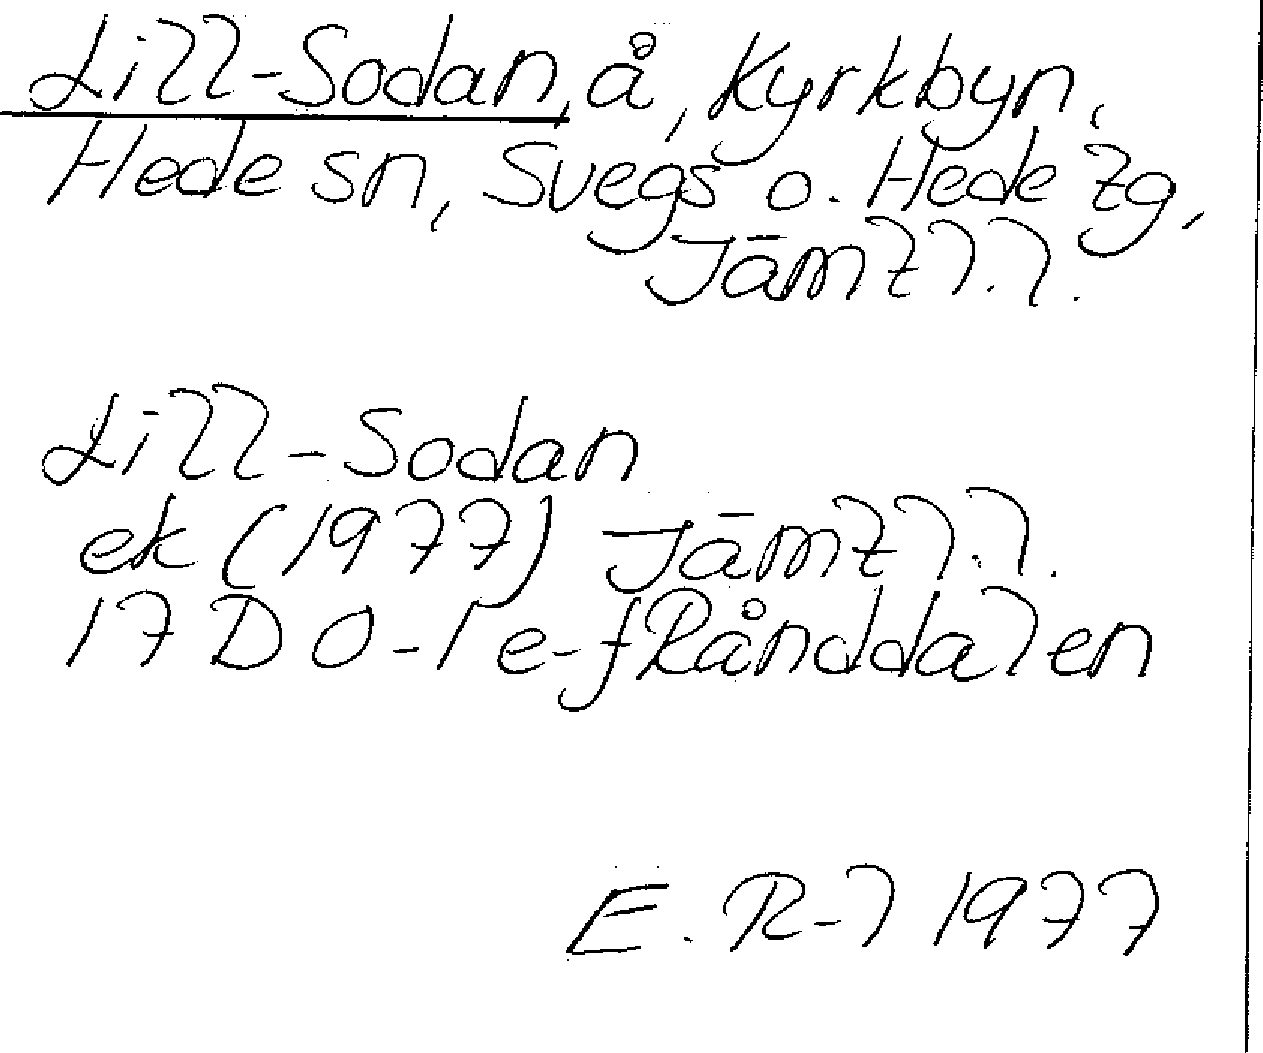 Lill-Sodan, å, Kyrkbyn,
Hede sn, Svegs o. Hede tg,
Jämtl.l.
Lill-Sodan
ek (1977) Jämtl.l.
17D 0-1 e-f Rånddalen
E. R-l 1977